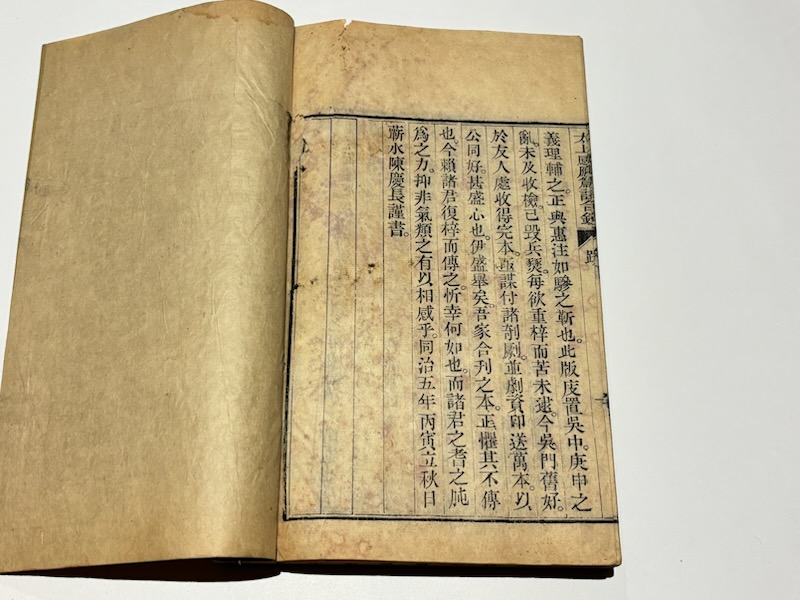 太上感應篇 跋
義理輔之。正與惠注如驂之靳也。此版庋置吳中。庚申之
亂。未及收檢。已毀兵燹。每欲重梓而苦未逮。今吳門舊好。
於友人處收得完本。亟謀付諸剞劂。並劇資印送萬本。以
公同好。甚盛心也。伊盛舉矣。吾家合刊之本。正懼其不傳
也。今賴諸君復梓而傳之。忻幸何如也。而諸君之耆之肫
爲之力。抑非氣類之有以相感乎。同治五年丙寅立秋日
蘄水陳慶長謹書。